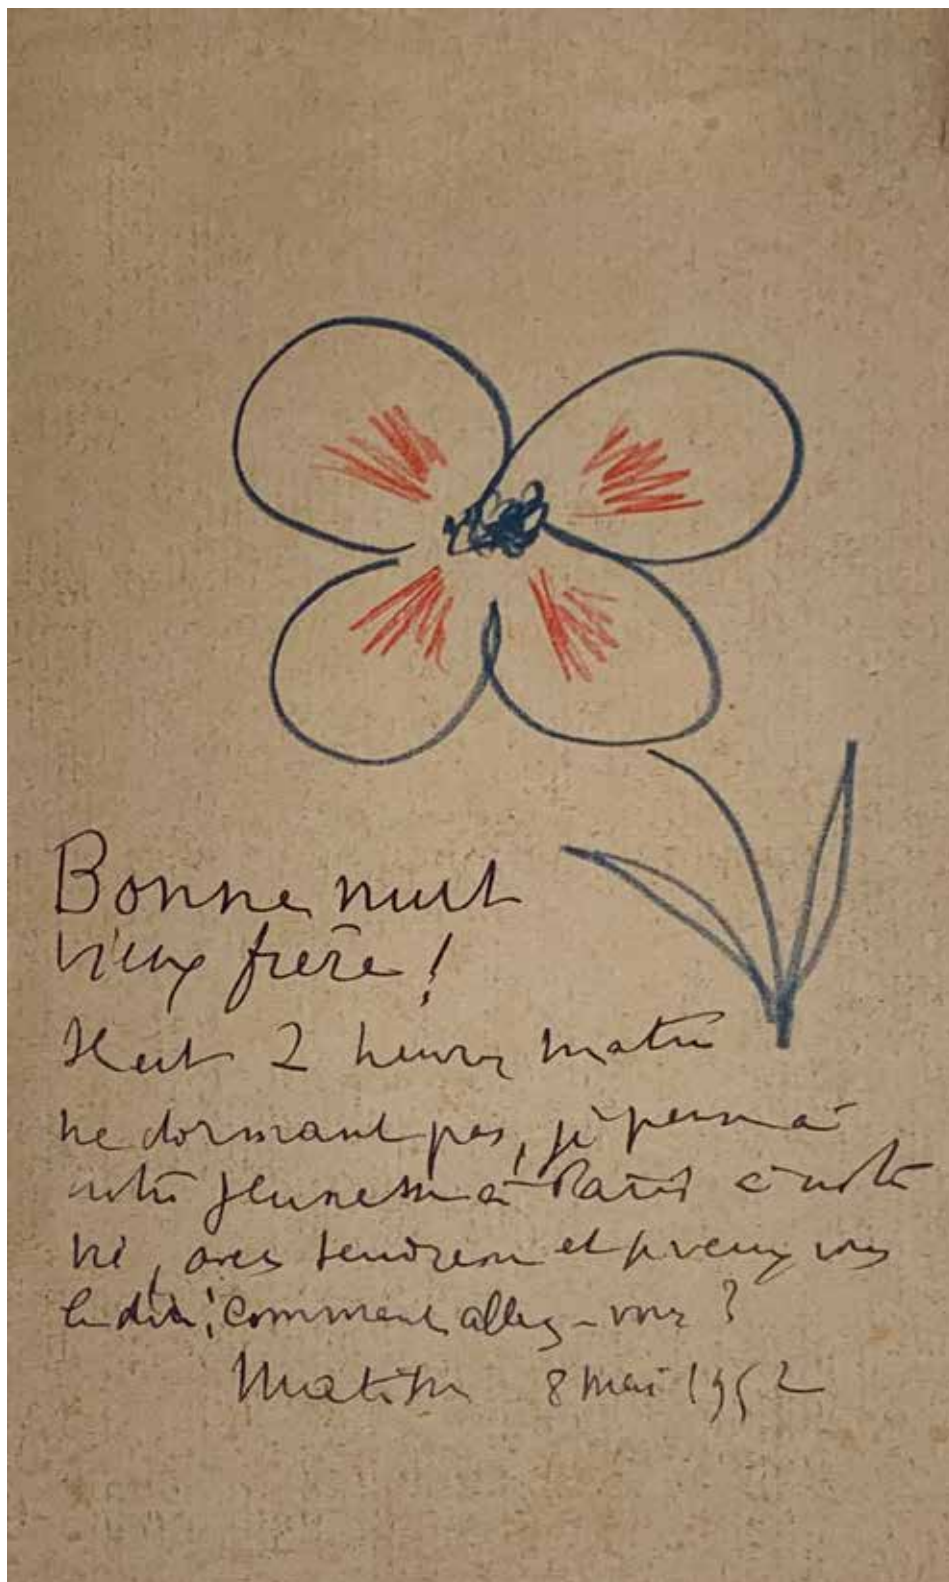 Bonne nuit
vieux frère !
Il est 2 heures matin
ne dormant pas, je pense à
notre jeunesse à Paris à notre
vie, avec tendresse et je veux vous
le dire, comment allez-vous ?
Matisse 8 mai 1952